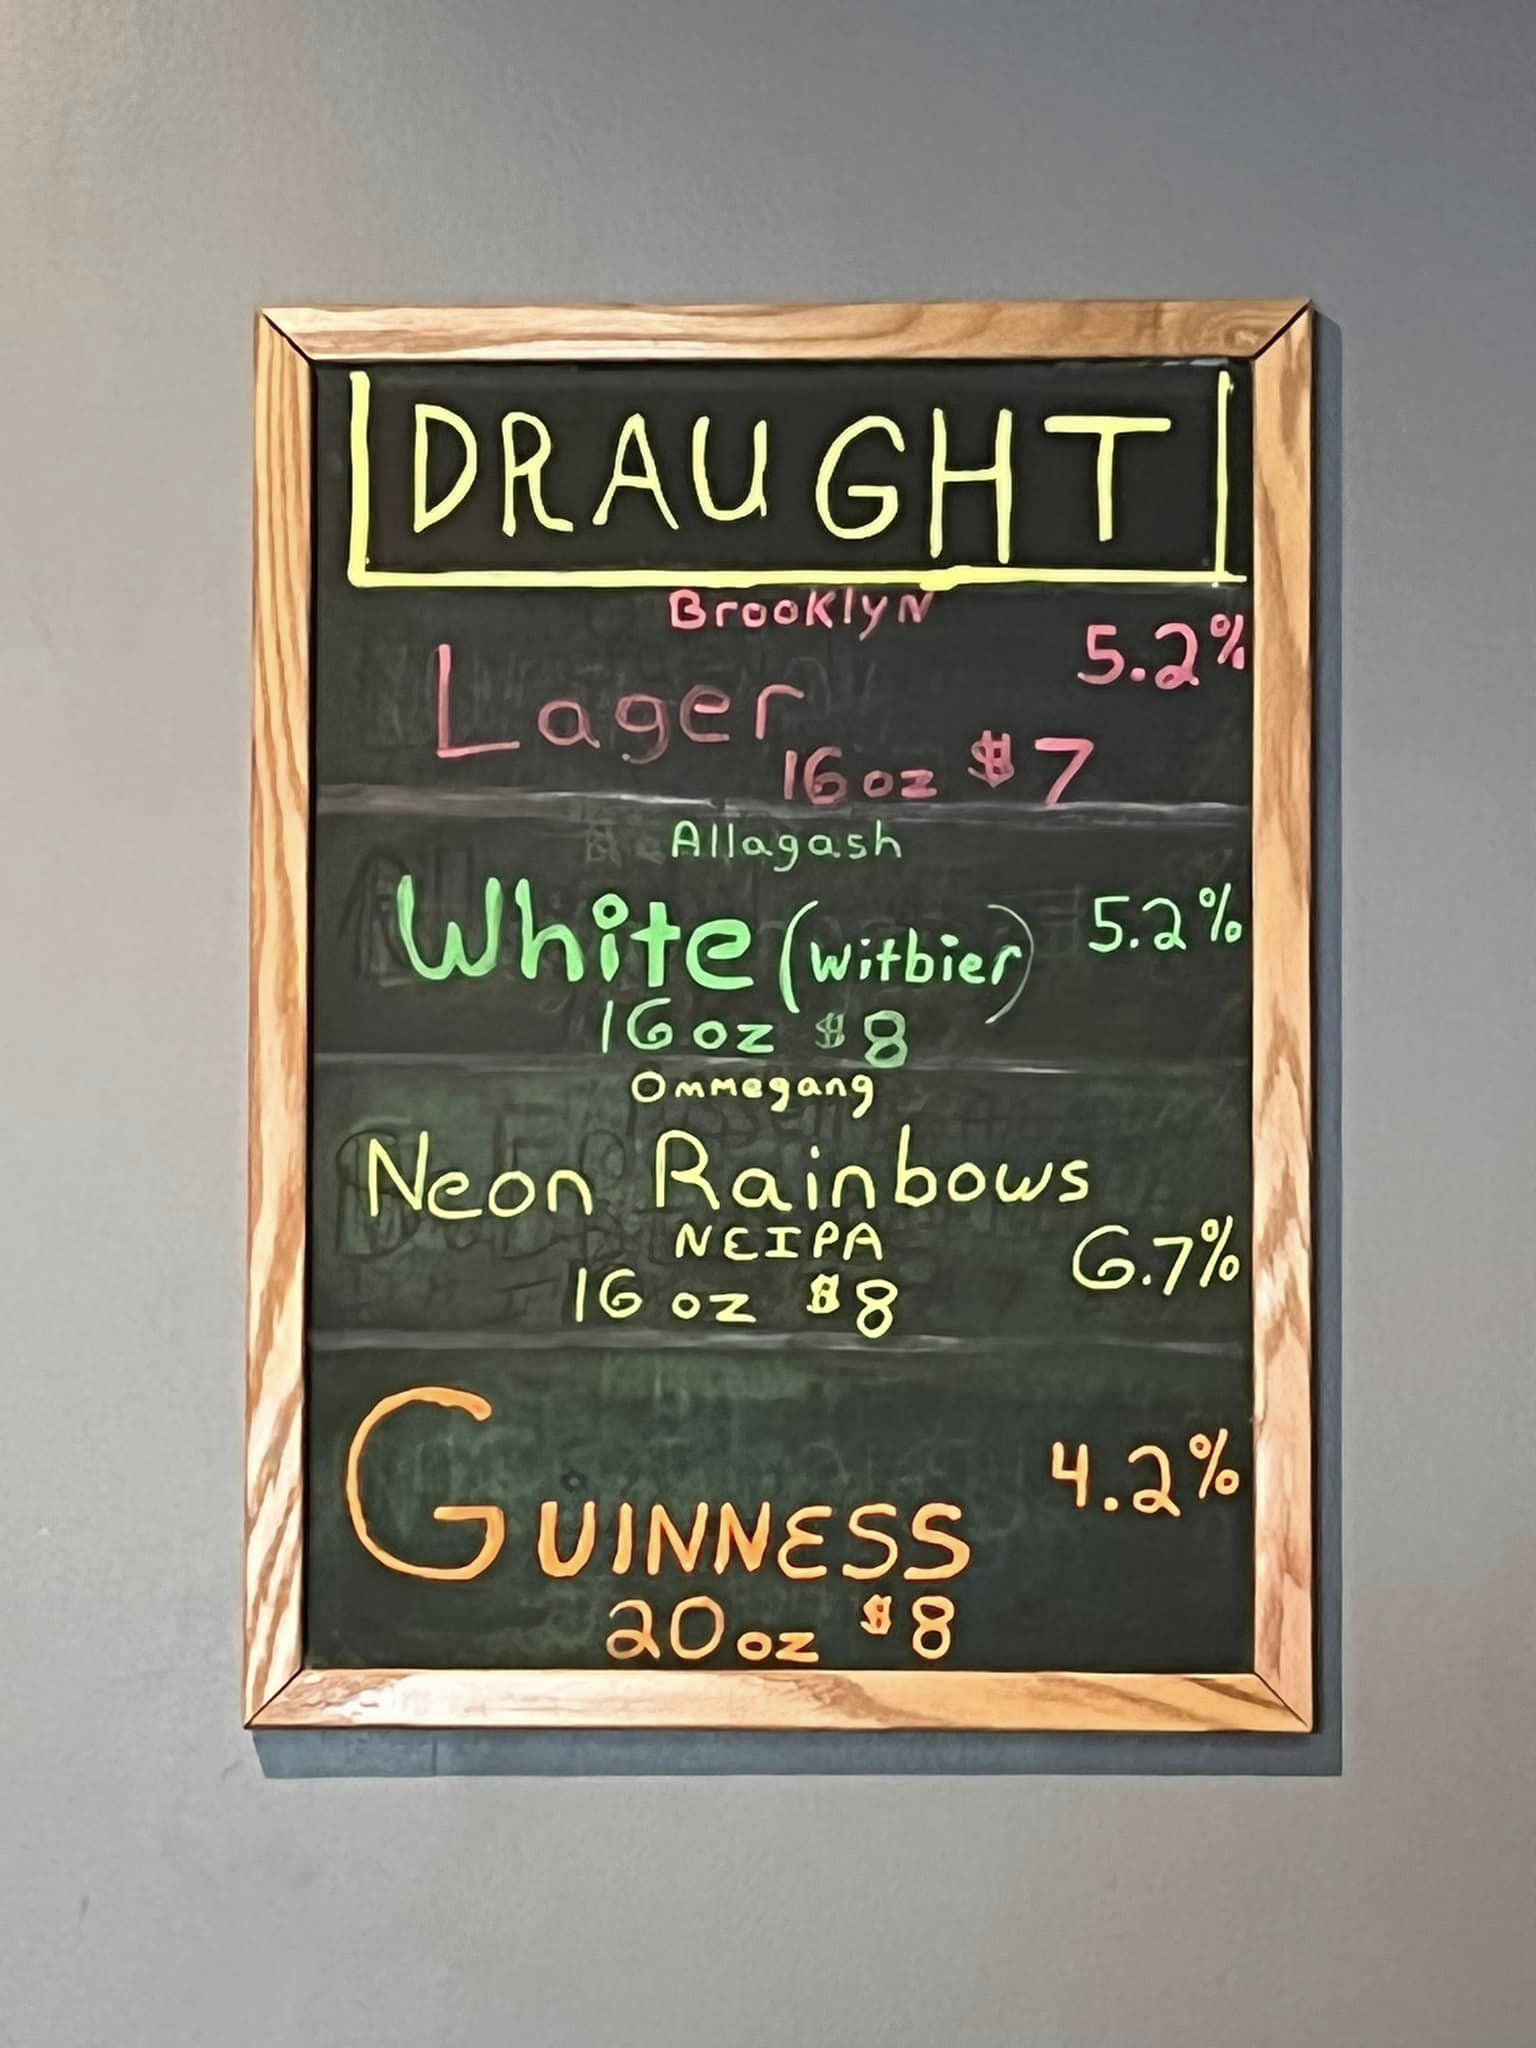 DRAUGHT
Brooklyn
5.2%
Lager
16 oz $7
Allagash
White (witbier) 5.2%
16 oz $8
Ommegang
Neon Rainbows
NEIPA 6.7%
16 oz $8
GUINNESS 4.2%
20 oz $8